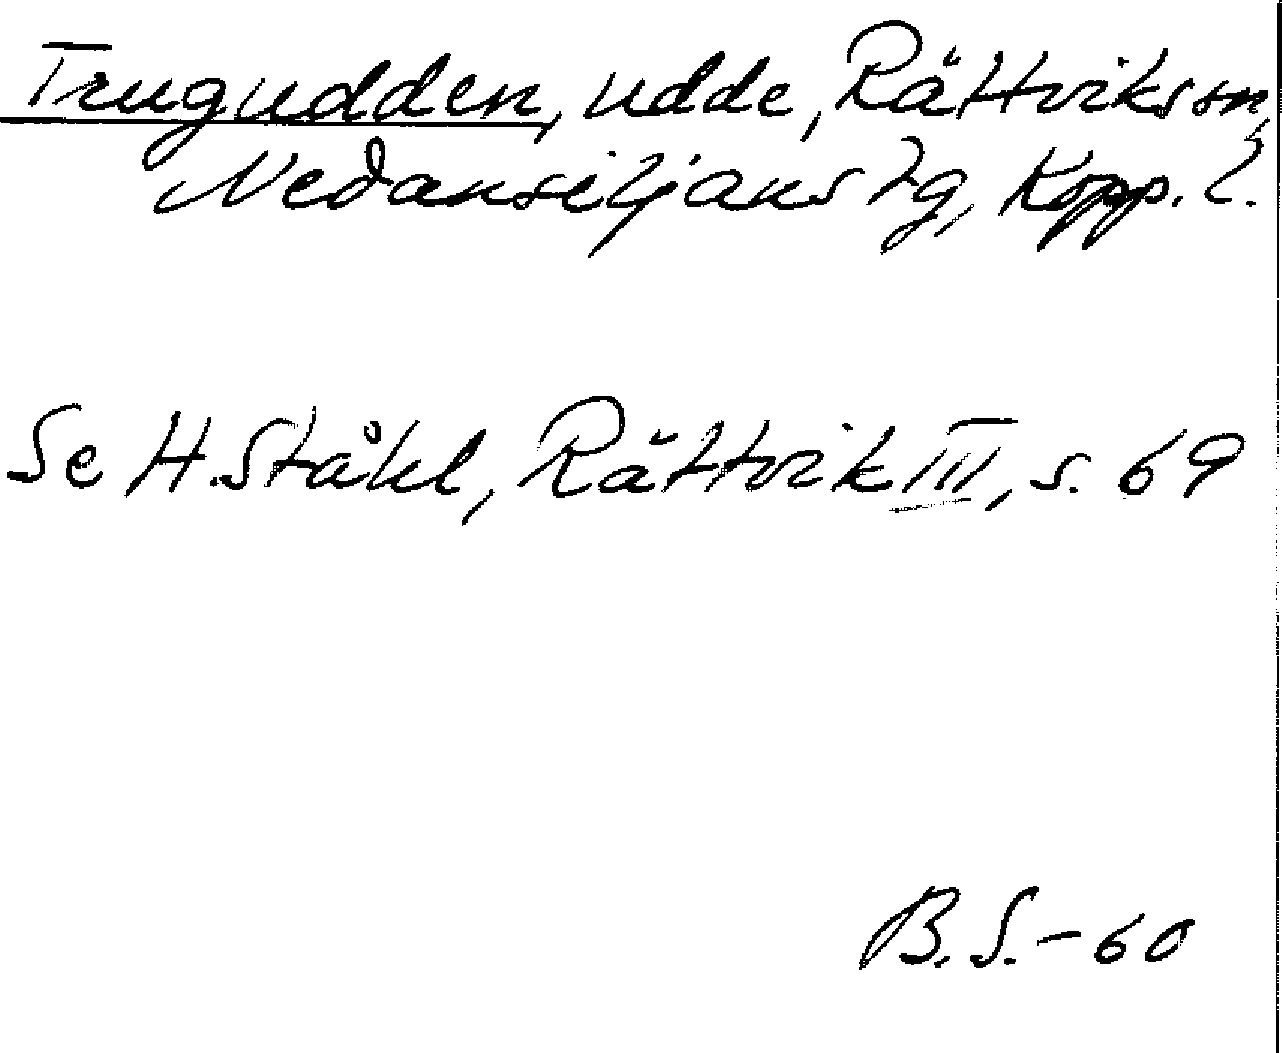 Trugudden, udde, Rättviks sn,
Nedansiljans tg, Kopp. l.
Se H. Ståhl, Rättvik III, s. 69
B. S. - 60